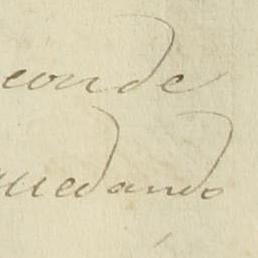 conde
quedando